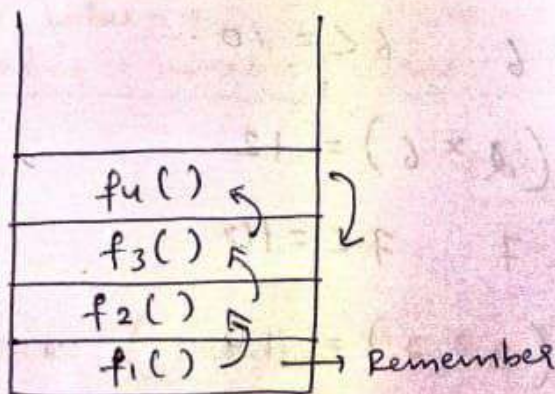 f4()
f3()
f2()
f1() → Remember